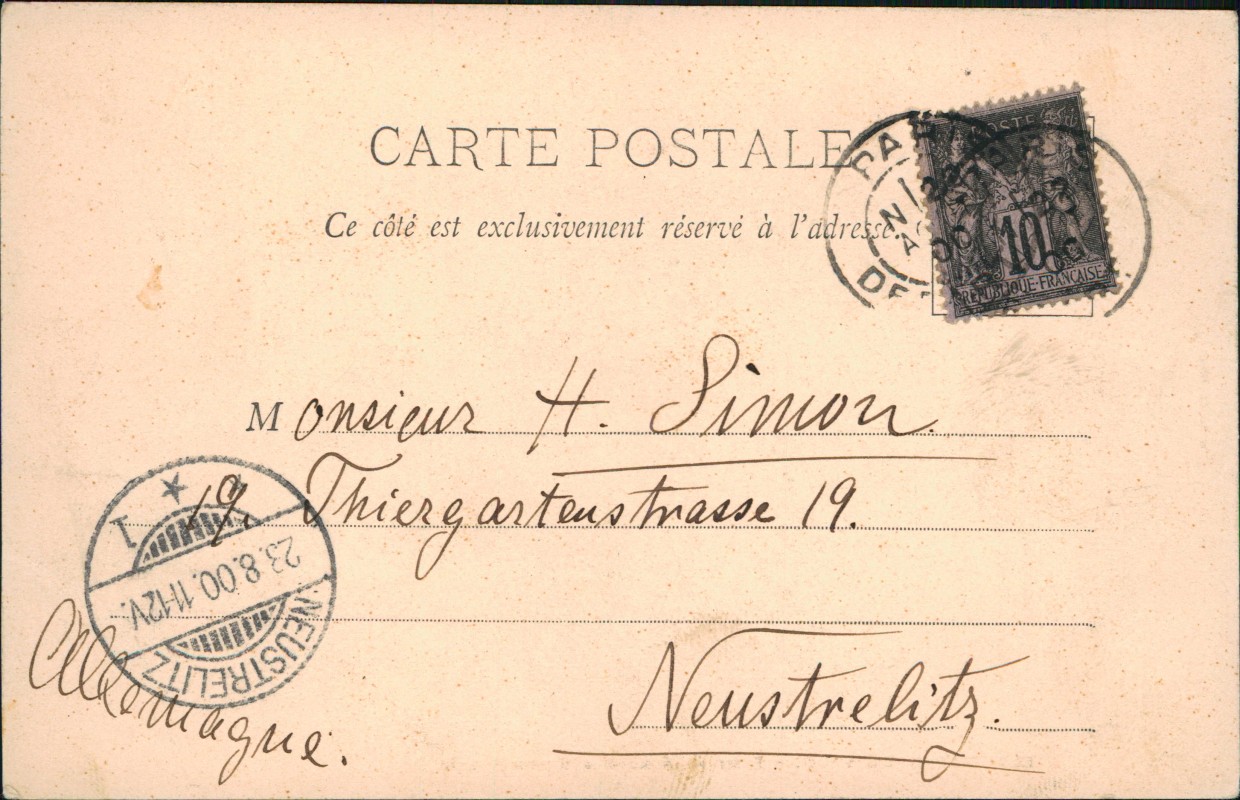 CARTE POSTALE
Ce côté est exclusivement réservé à l'adresse.
POSTE
10
REPUBLIQUE FRANÇAISE
Monsieur H. Simon.
19, Thiergartenstrasse 19.
Neustrelitz.
Allemagne.
1
23.8.00.11-12V.
NEUSTRELITZ